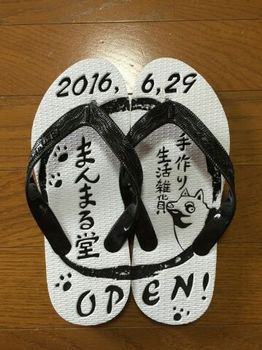 2016, 6,29
まんまる堂
手作り
生活雑貨
OPEN!